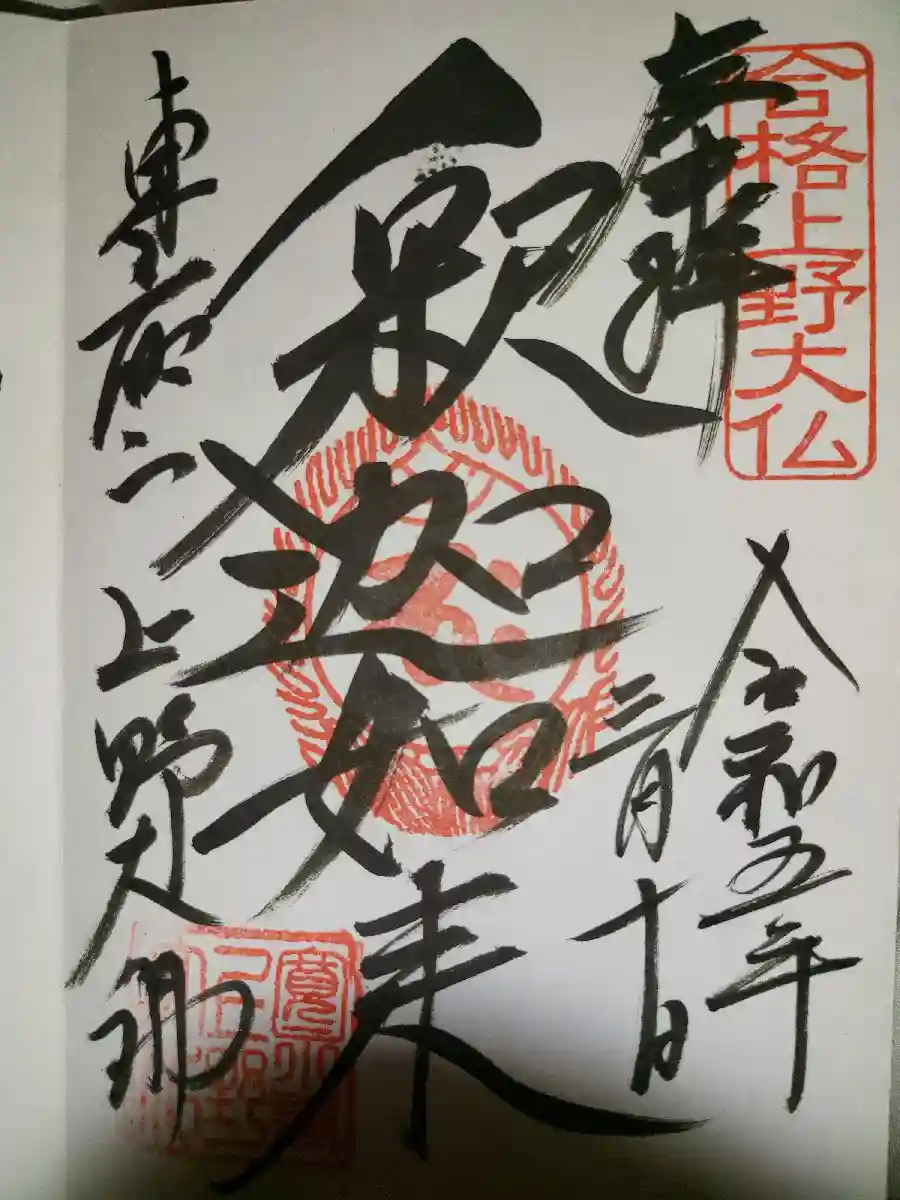 合格上野大仏
奉拝
令和五年
三月十日
釈迦如来
東叡山上野大佛